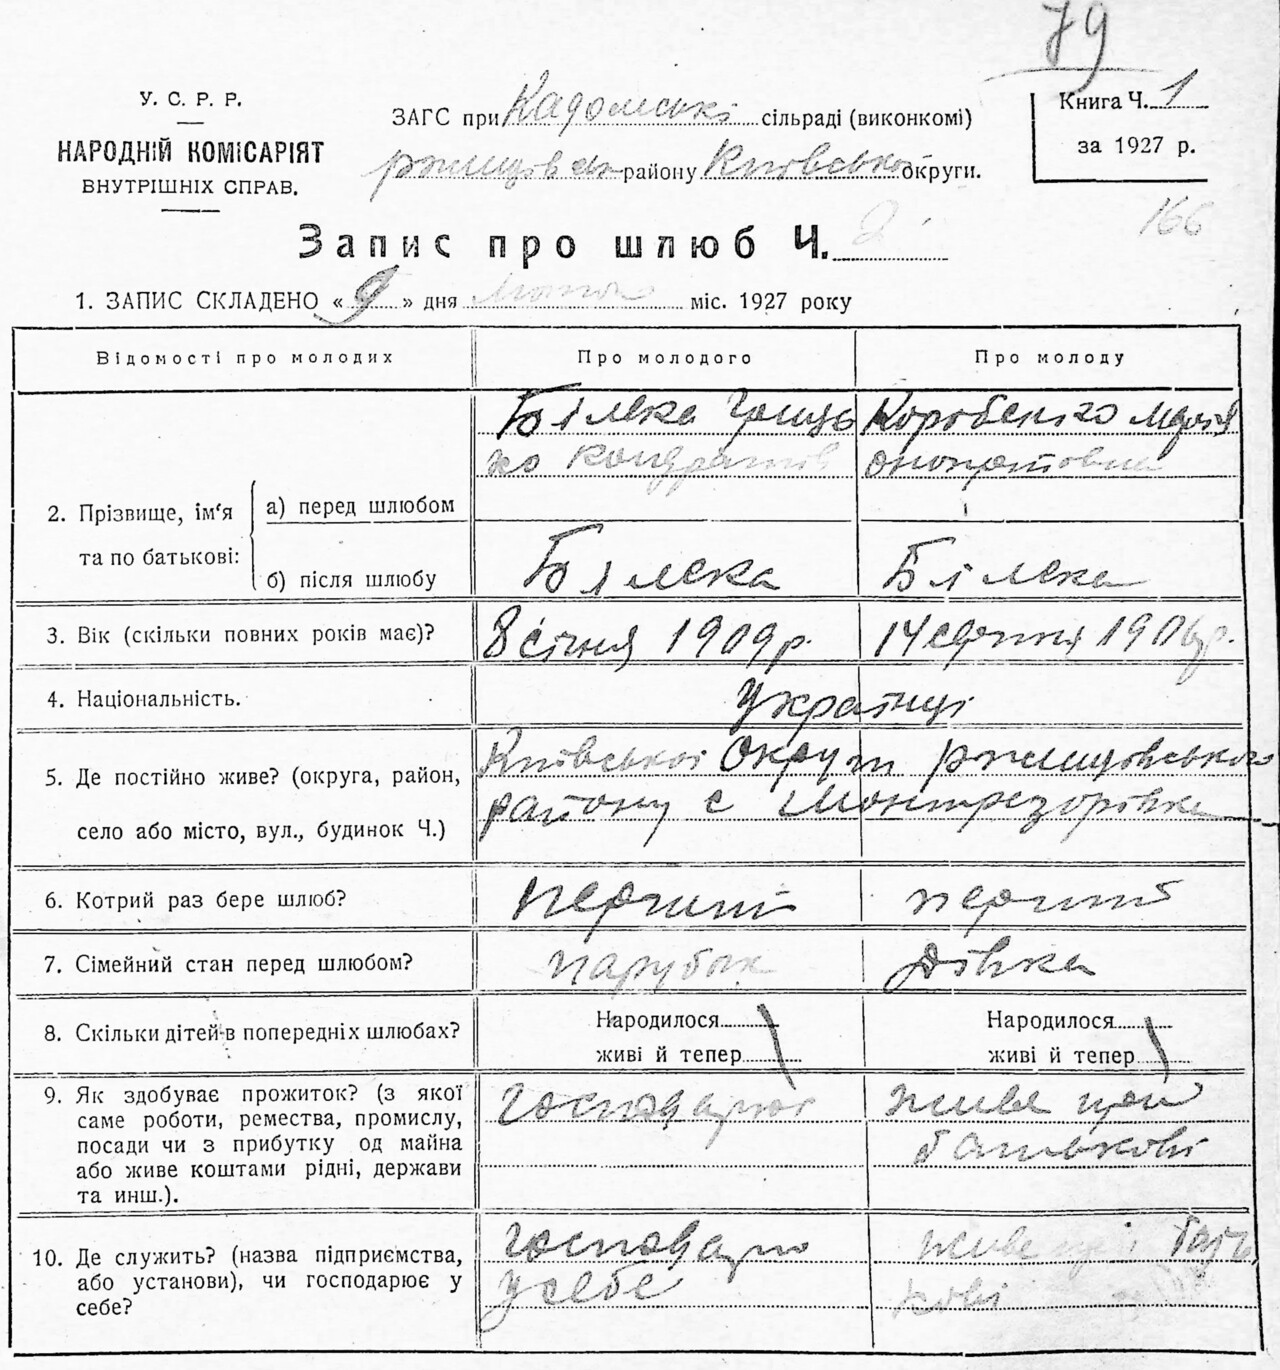 79
У. С. Р. Р.
НАРОДНІЙ КОМІСАРІЯТ
ВНУТРІШНІХ СПРАВ.
ЗАГС при Кадомські сільраді (виконкомі)
району Київської округи.
Книга Ч. 1
за 1927 р.
166
Запис про шлюб Ч. 2
1. ЗАПИС СКЛАДЕНО « 9 » дня міс. 1927 року
Відомості про молодих
Про молодого
Про молоду
2. Прізвище, ім'я
та по батькові:
а) перед шлюбом
Білека Гриць
ко Кондратів
Коробенко Марія
б) після шлюбу
Білека
Білека
3. Вік (скільки повних років має)?
8 січня 1909 р.
14 серпня 190 р.
4. Національність.
Українці
5. Де постійно живе? (округа, район,
село або місто, вул., будинок Ч.)
Київської Округи ржищівського
району с Монтрезорівка
6. Котрий раз бере шлюб?
перший
перший
7. Сімейний стан перед шлюбом?
парубок
дівка
8. Скільки дітей в попередніх шлюбах?
Народилося
живі й тепер
Народилося
живі й тепер
9. Як здобуває прожиток? (з якої
саме роботи, ремества, промислу,
посади чи з прибутку од майна
або живе коштами рідні, держави
та инш.).
живе при
батькові
10. Де служить? (назва підприємства,
або установи), чи господарює у
себе?
у себе
живе при бать
кові